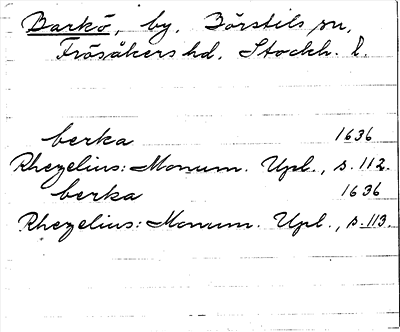 Barkö, by, Börstils sn,
Frösåkers hd, Stockh. l.
berka 1636
Rhezelius: Monum. Upl., s. 112.
berka 1636
Rhezelius: Monum. Upl., s. 113.